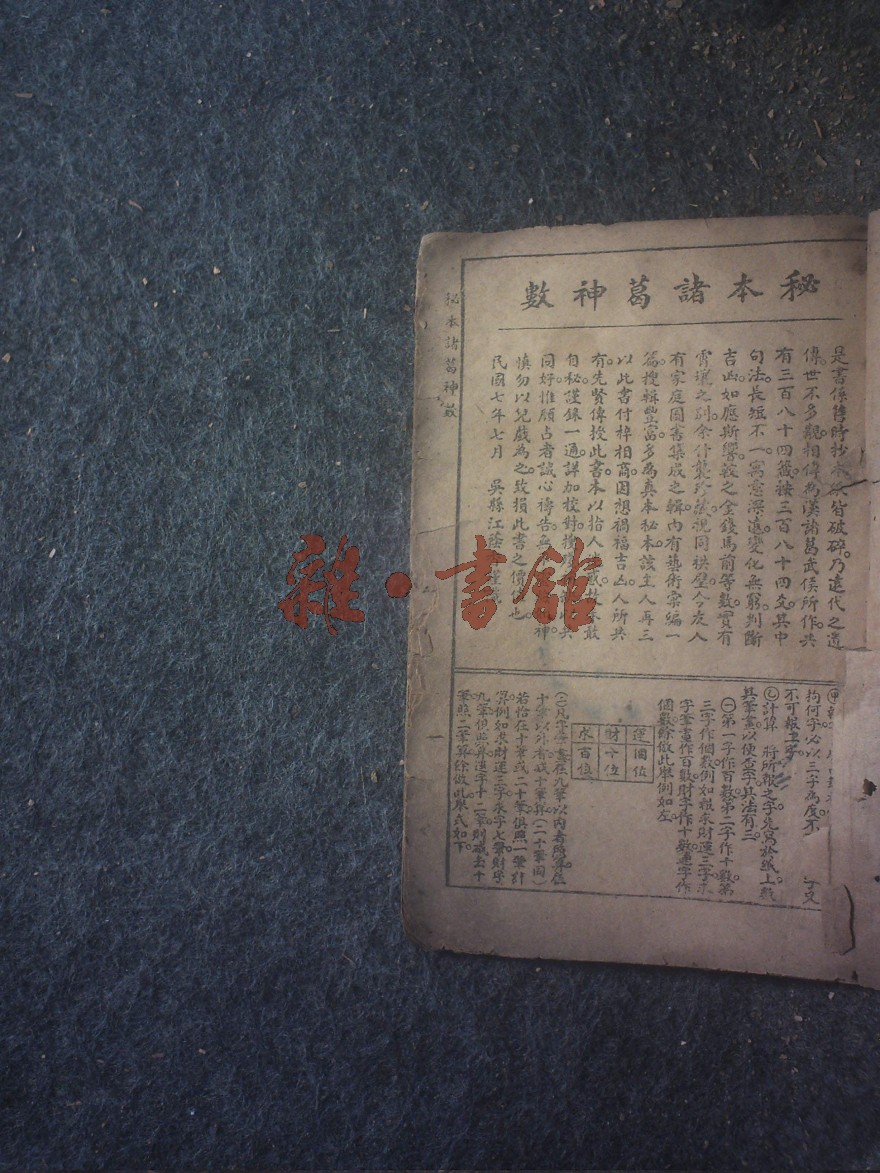 秘本諸葛神數
是書係舊時抄本紙皆破碎。乃遠代之遺
傳。世不多覯。相傳為漢諸葛武侯所作。共
有三百八十四籤。按三百八十四爻。其中
句法。長短不一。寓意深遠。變化無窮。判斷
吉凶。如應斯響。較之金錢馬前等數。實有
霄壤之別。余什襲珍藏。視同拱璧。今友人
有家庭圖書集成之輯。內有藝術彙編一
篇。搜輯豐富。多為真本秘本。該主人再三
以此書付梓相商。因想禍福吉凶。人所共
有。先賢傳授此書。本以指人迷
自秘。謹錄一通。詳加校對。授
同好。惟願占者誠心禱告。神。
慎勿以兒戲為之。致損此書之價值也。
民國七年七月　吳縣江蔭
拘何字。必以三字為度。不
不可報三字。
㊁計算　將所報之字。先寫於紙上。數
其筆畫。以便查字。其法有三
㊀第一字作百數。第二字作十數。第
三字作個數。例如報求財運三字。求
字筆畫作百數。財字作十數。運字作
個數。餘倣此。舉例如左。
運 個位
財 十位
求 百位
㊁凡字筆畫在九筆以內者。照算。在
十筆以外者。減十筆算。(二十筆同)
若恰在十筆或二十筆。俱照一筆計
算。例如求財運三字。求字七筆。財字
九筆。俱照算。運字十二筆。則減去十
筆。照二筆算。餘倣此。舉式如下。
秘本諸葛神數
一
雜·書館